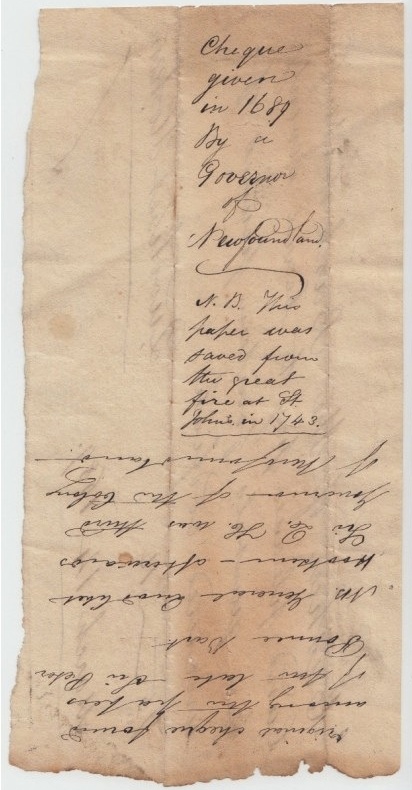 Cheque
given
in 1689
By a
Governor
of
Newfoundland.
N.B. This
paper was
saved from
the great
fire at St
John's in 1743.
Original cheque found
among the papers
of the late Sir Peter
Bart.
NB General Quodlibet
Hookem – afterwards
Sir Q. H. was third
Governor of the Colony
of Newfoundland –